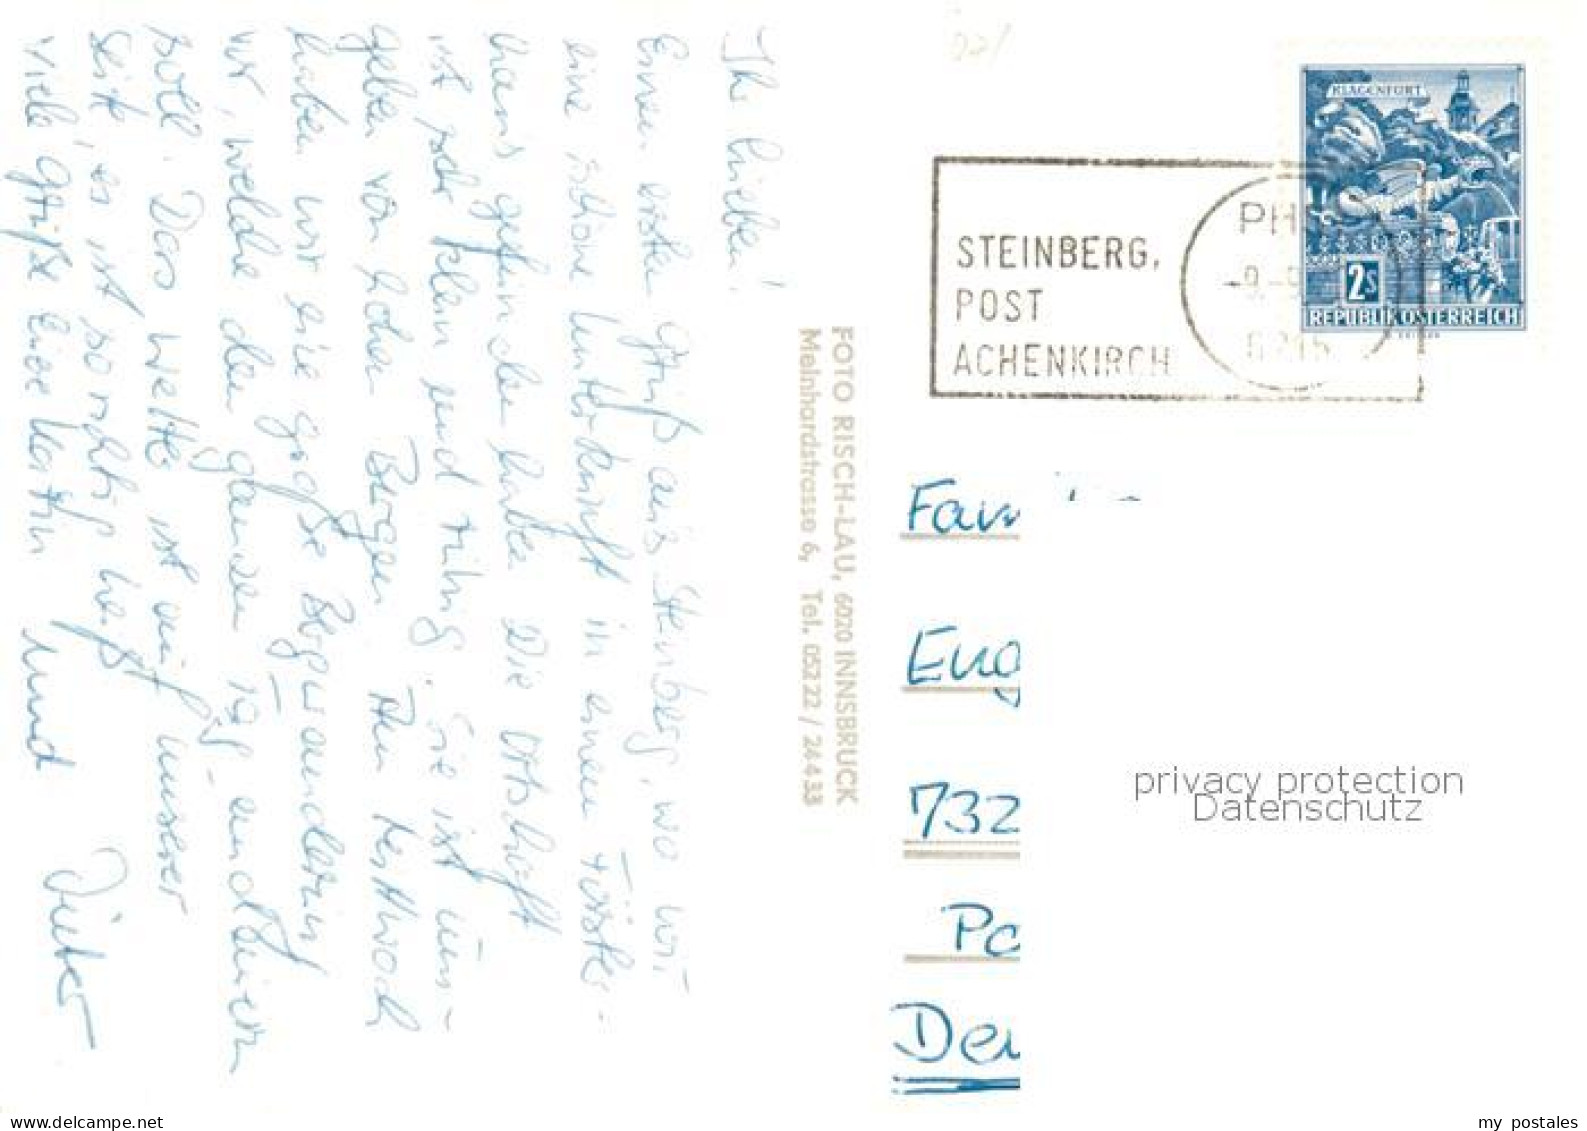 Ihr Lieben!
Einen ersten Gruß aus Steinberg, wo wir
eine schöne Unterkunft in einem Förster-
haus gefunden haben. Die Ortschaft
ist sehr klein und ruhig. Sie ist um-
geben von hohen Bergen. Am Mittwoch
haben wir eine große Bergwanderung
vor, welche den ganzen Tag andauern
soll. Das Wetter ist auf unserer
Seite, es ist so richtig heiß
Viele Grüße Eure Katrin und
Dieter
FOTO RISCH-LAU, 6020 INNSBRUCK
Meinhardstrasse 6, Tel. 05222 / 24433
KLAGENFURT
2S
REPUBLIK ÖSTERREICH
STEINBERG,
POST
ACHENKIRCH
6215
Fam
Eng
732
Po
Deu
privacy protection
Datenschutz
my postales